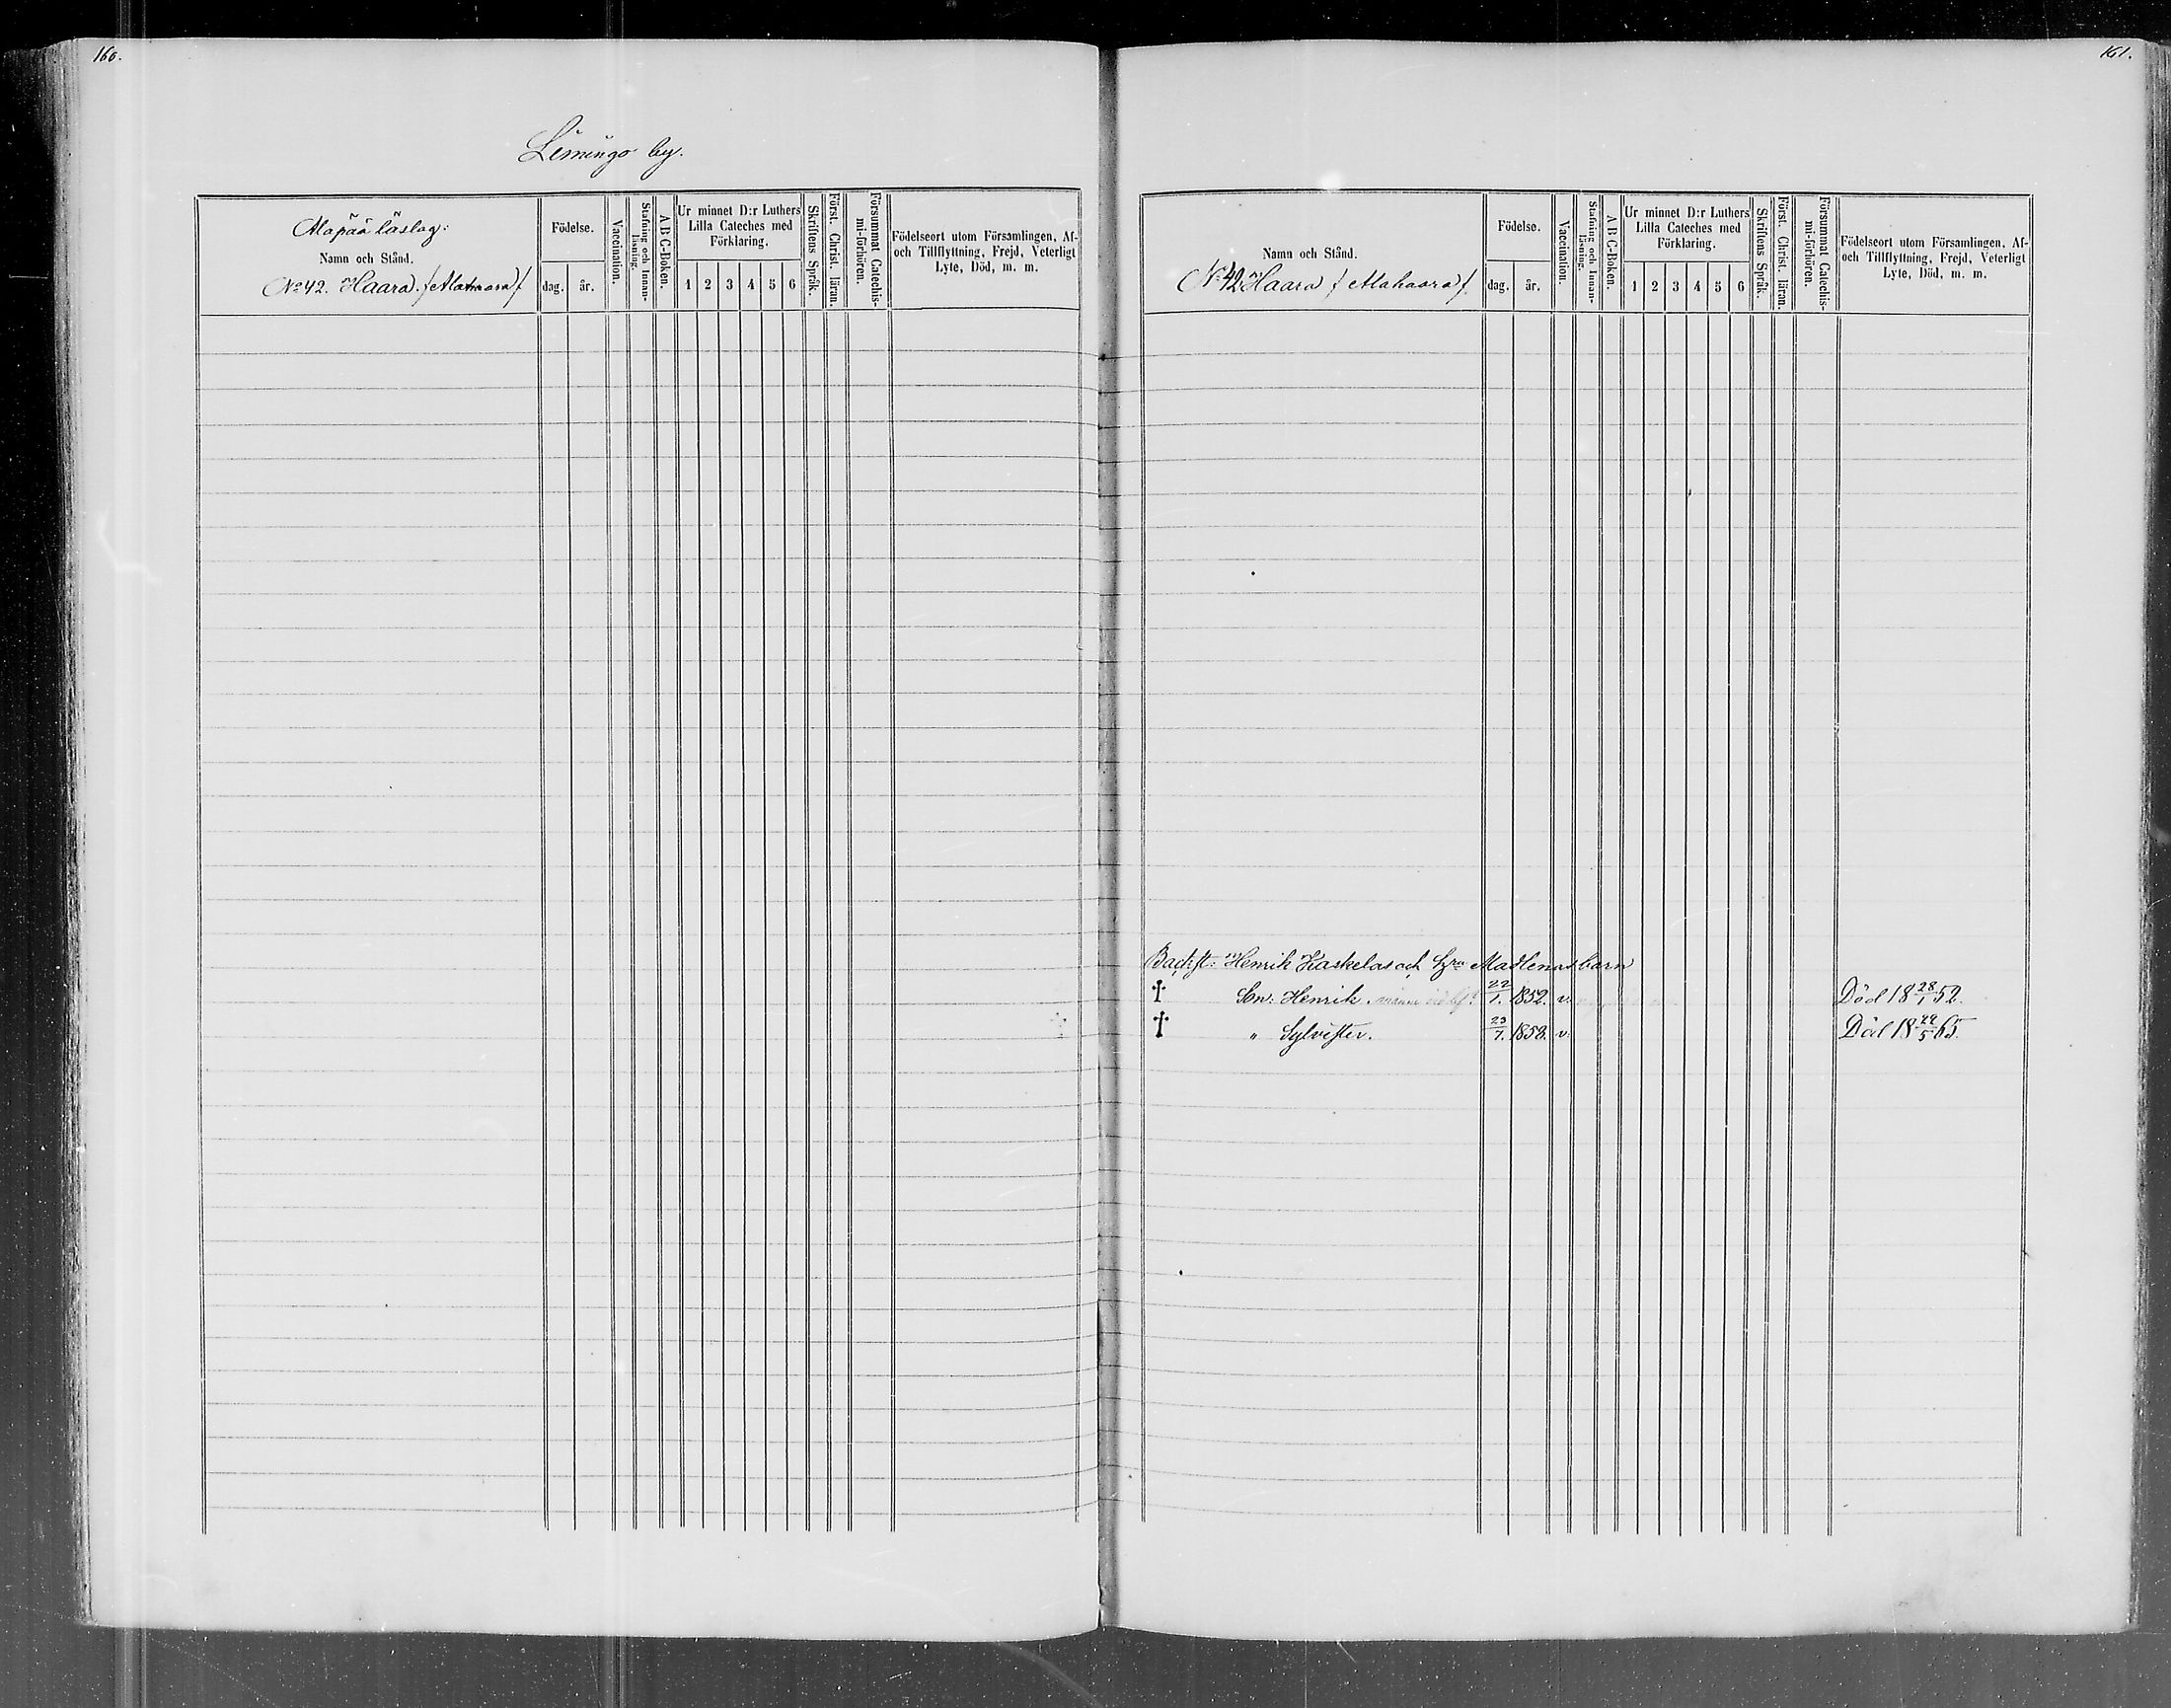 160.
Lemingo by.
Alapää läslag:
Namn och Stånd.
No 42. Haara. /Alahaara/
Födelse.
dag. år.
Vaccination.
Stafning och Innan-läsning.
A B C-Boken.
Ur minnet D:r Luthers
Lilla Cateches med
Förklaring.
1 2 3 4 5 6
Skriftens Språk.
Först. Christ. läran.
Försummat Catechis-
mi-förhören.
Födelseort utom Församlingen, Af-
och Tillflyttning, Frejd, Veterligt
Lyte, Död, m. m.
161.
Namn och Stånd.
No 42 Haara /Alahaara/
Födelse.
dag. år.
Vaccination.
Stafning och Innan-
läsning.
A B C-Boken.
Ur minnet D:r Luthers
Lilla Cateches med
Förklaring.
1 2 3 4 5 6
Skriftens Språk.
Först. Christ. läran.
Försummat Catechis-
mi-förhören.
Födelseort utom Församlingen, Af-
och Tillflyttning, Frejd, Veterligt
Lyte, Död, m. m.
Backst: Henrik Kaskelas och Madlenas barn
† Son: Henrik. 22/1. 1852. v. Död 18 28/1 52.
† " Sylvester. 23/7. 1858. v. Död 18 29/5 65.